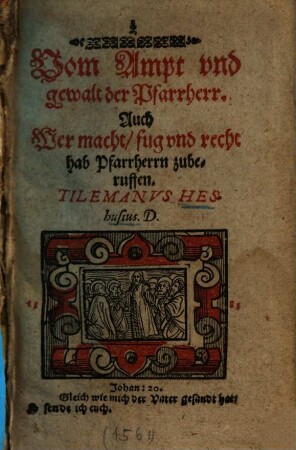 Vom Ampt vnd
gewalt der Pfarrherr.
Auch
Wer macht / fug vnd recht
hab Pfarrherrn zube-
ruffen.
TILEMANVS HES-
husius. D.
Johan: 20.
Gleich wie mich der Vater gesandt hat/
So sende ich euch.
(1561)